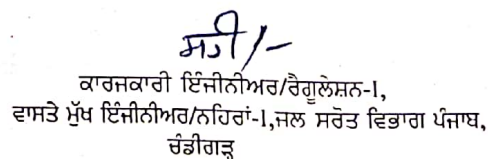 ਸਹੀ/-
ਕਾਰਜਕਾਰੀ ਇੰਜੀਨੀਅਰ/ਰੈਗੂਲੇਸ਼ਨ-1,
ਵਾਸਤੇ ਮੁੱਖ ਇੰਜੀਨੀਅਰ/ਨਹਿਰਾਂ-1,ਜਲ ਸਰੋਤ ਵਿਭਾਗ ਪੰਜਾਬ,
ਚੰਡੀਗੜ੍ਹ